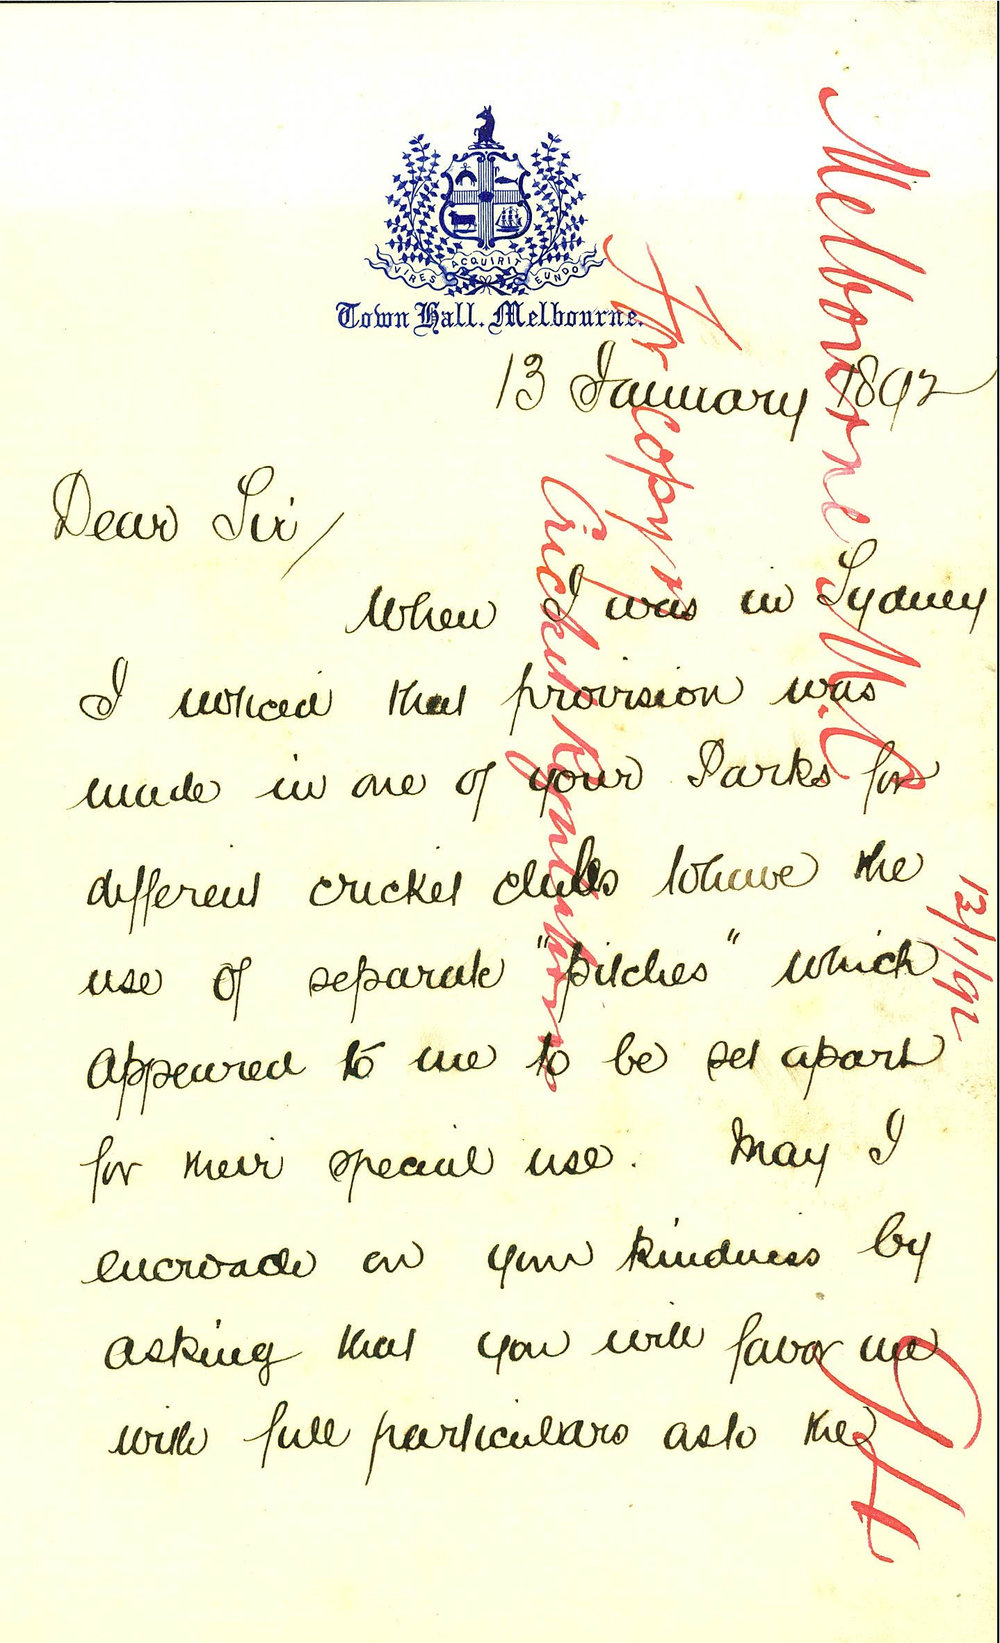 VIRES ACQUIRIT EUNDO
Town Hall. Melbourne.
13 January 1892
Dear Sir/
When I was in Sydney
I noticed that provision was
made in one of your Parks for
different cricket clubs to have the
use of separate "pitches" which
appeared to me to be set apart
for their special use. May I
encroach on your kindness by
asking that you will favor me
with full particulars as to the
Melbourne M.C.
For copy of
Cricket Regulations
13/1/92